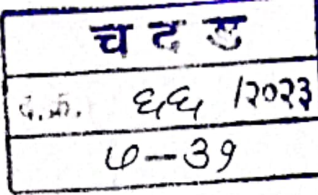 च द ड
द.क्र. ६६ /२०२३
७-३१